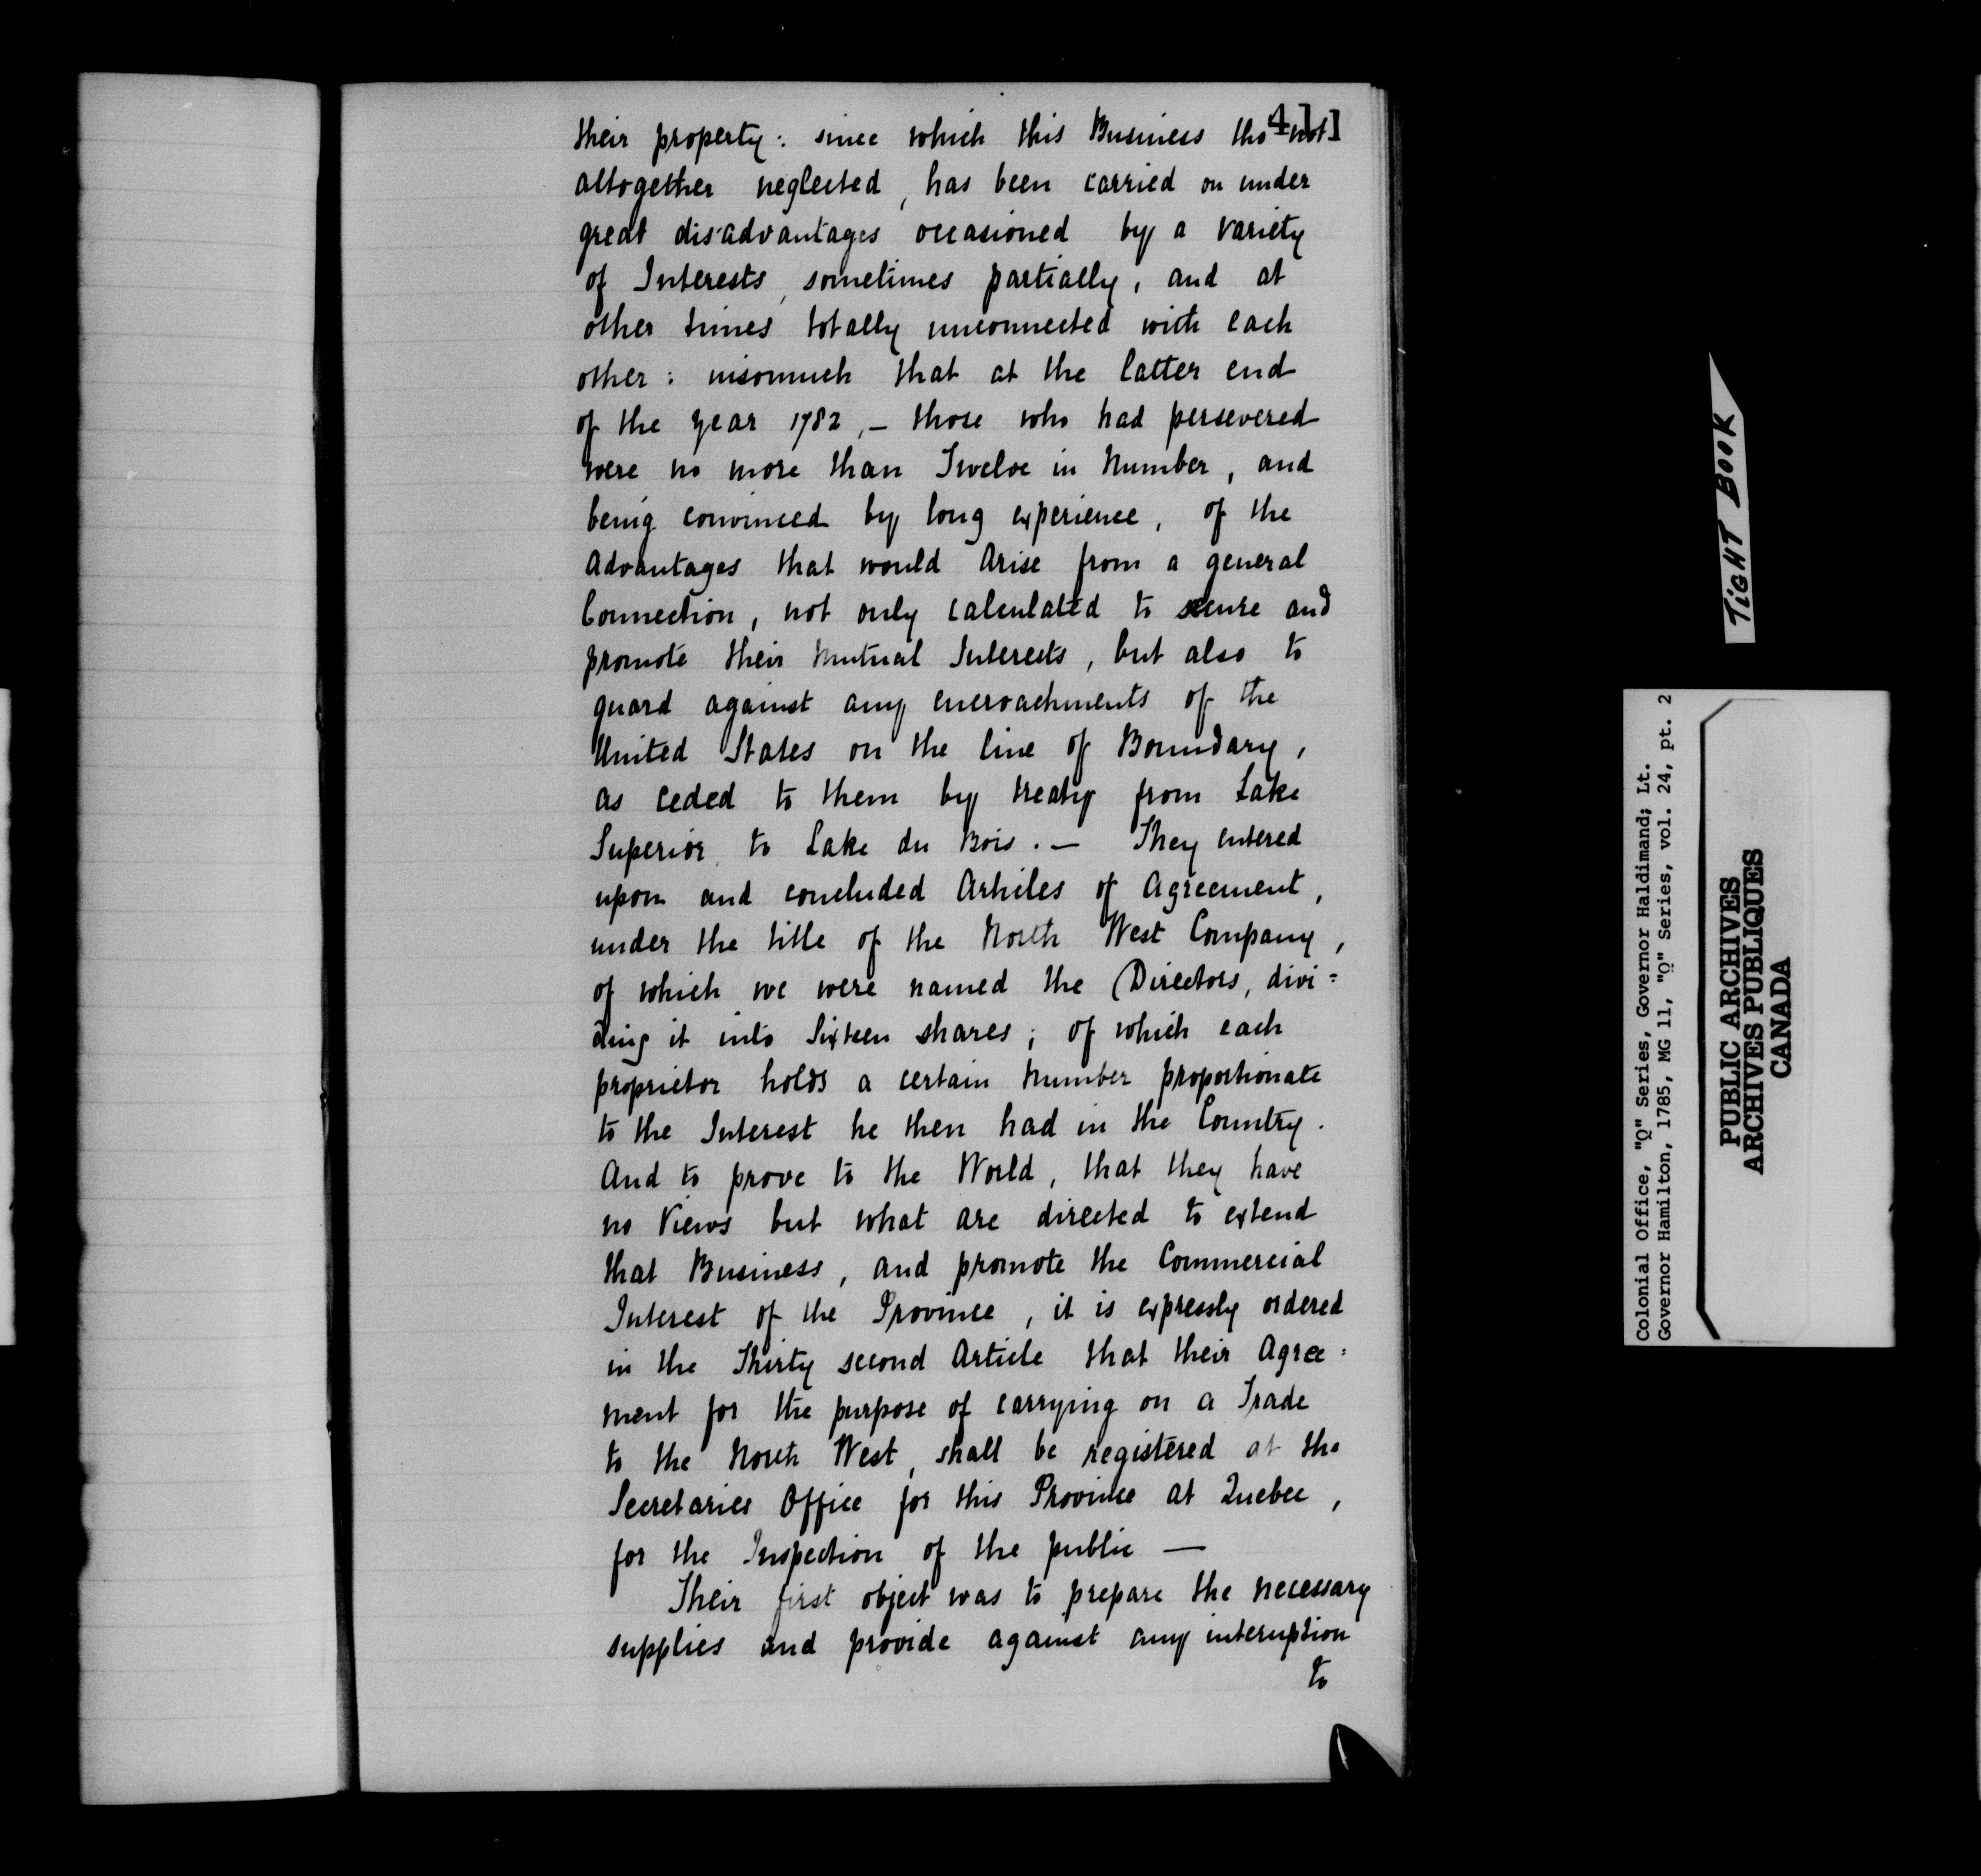 their property: since which this Business tho not
altogether neglected, has been carried on under
great disadvantages occasioned by a variety
of Interests, sometimes partially, and at
other times totally unconnected with each
other: insomuch that at the latter end
of the year 1782, — those who had persevered
were no more than Twelve in Number, and
being convinced by long experience, of the
advantages that would arise from a general
Connection, not only calculated to secure and
promote their Mutual Interests, but also to
guard against any encroachments of the
United States on the line of Boundary,
as ceded to them by treaty from Lake
Superior to Lake du Bois. — They entered
upon and concluded Articles of Agreement,
under the title of the North West Company,
of which we were named the Directors, divi=
ding it into Sixteen shares; of which each
proprietor holds a certain Number proportionate
to the Interest he then had in the Country.
And to prove to the World, that they have
no Views but what are directed to extend
that Business, and promote the Commercial
Interest of the Province, it is expressly ordered
in the Thirty second Article that their Agree=
ment for the purpose of carrying on a Trade
to the North West, shall be registered at the
Secretaries Office for this Province at Quebec,
for the Inspection of the public —
Their first object was to prepare the necessary
supplies and provide against any interuption
to
TIGHT BOOK
Colonial Office, "Q" Series, Governor Haldimand; Lt.
Governor Hamilton, 1785, MG 11, "Q" Series, vol. 24, pt. 2
PUBLIC ARCHIVES
ARCHIVES PUBLIQUES
CANADA